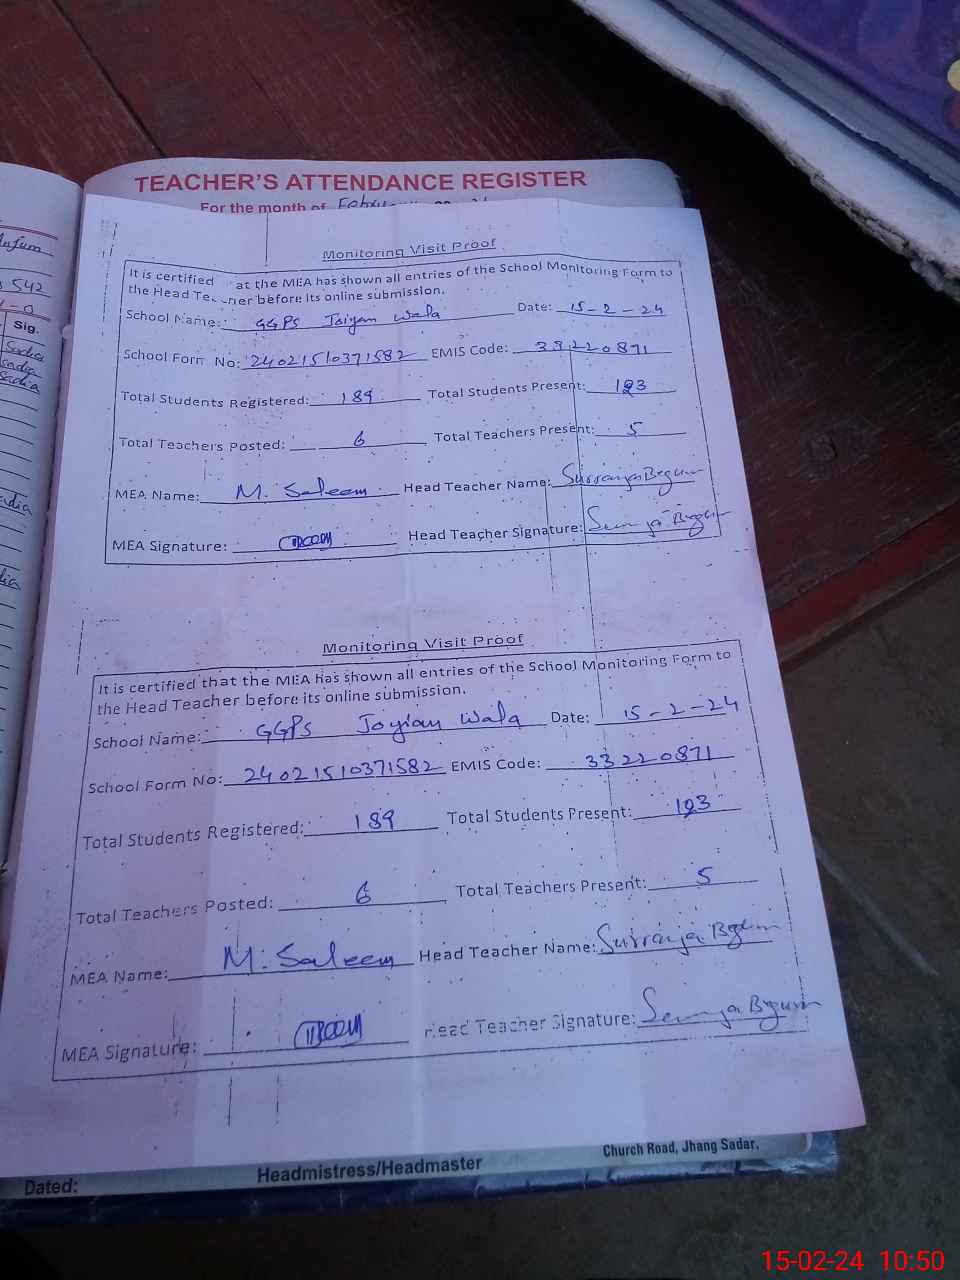 TEACHER'S ATTENDANCE REGISTER
For the month of
Anjum
542
Sig.
Sadia
Sadia
Sadia
Monitoring Visit Proof
It is certified at the MEA has shown all entries of the School Monitoring Form to
the Head Teacher before its online submission.
School Name: GGPS Joiyan Wala Date: 15-2-24
School Form No: 24021510371582 EMIS Code: 33220871
Total Students Registered: 189 Total Students Present: 123
Total Teachers Posted: 6 Total Teachers Present: 5
MEA Name: M. Saleem Head Teacher Name: Begum
MEA Signature: Head Teacher Signature: Begum
Monitoring Visit Proof
It is certified that the MEA has shown all entries of the School Monitoring Form to
the Head Teacher before its online submission.
School Name: GGPS Joyian Wala Date: 15-2-24
School Form No: 24021510371582 EMIS Code: 33220871
Total Students Registered: 189 Total Students Present: 123
Total Teachers Posted: 6 Total Teachers Present: 5
MEA Name: M. Saleem Head Teacher Name: Begum
MEA Signature: Head Teacher Signature: Begum
Church Road, Jhang Sadar.
Dated: Headmistress/Headmaster
15-02-24 10:50